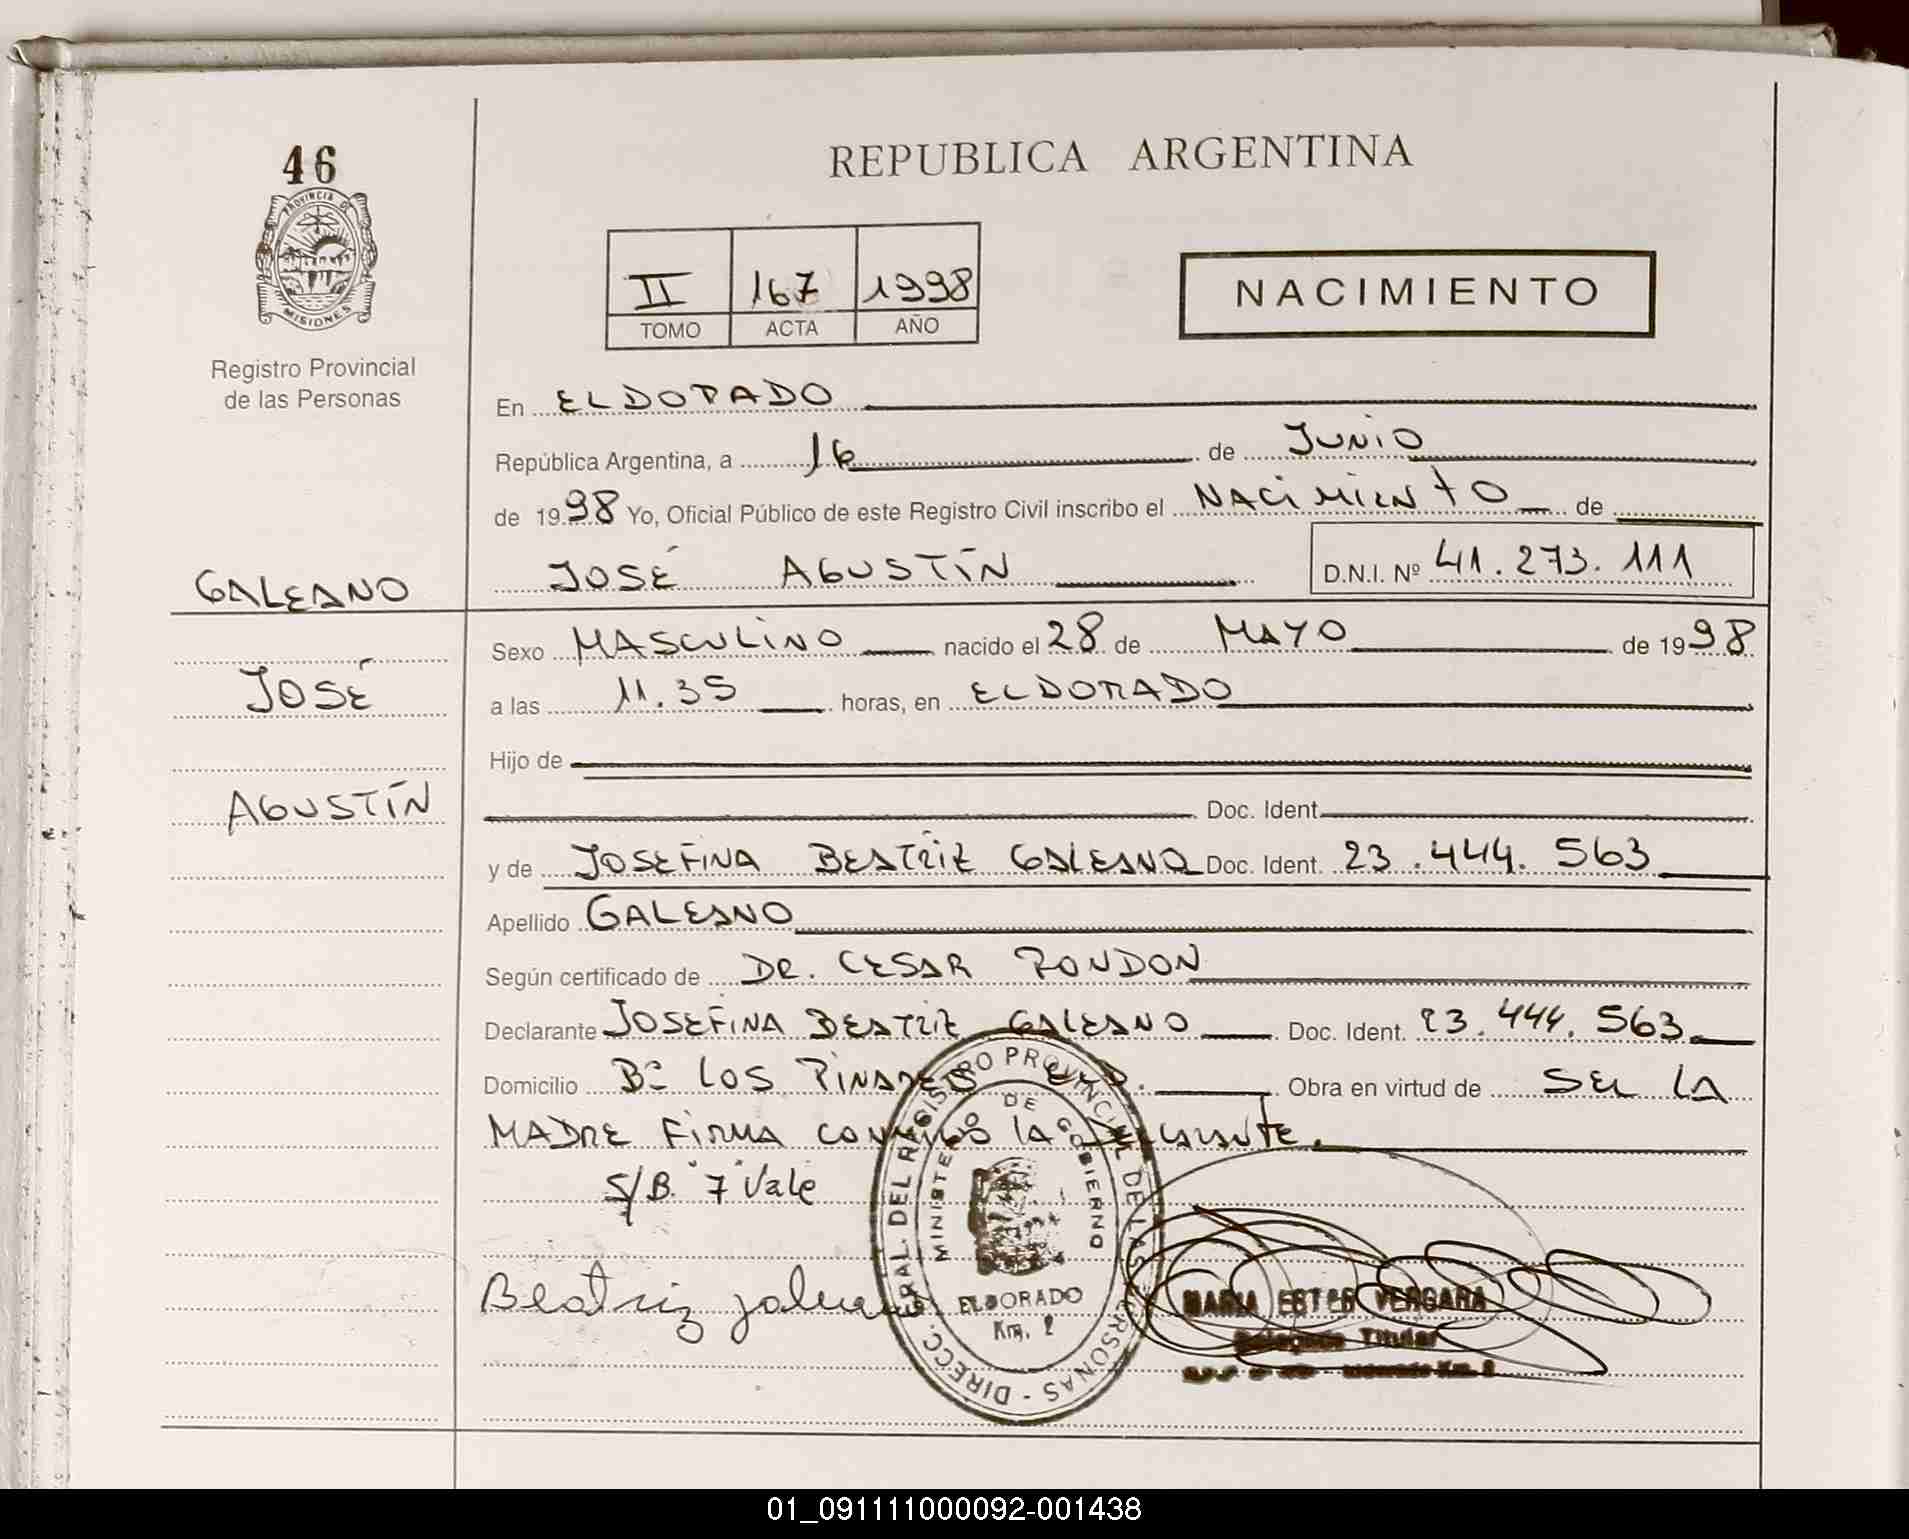 46
PROVINCIA DE
MISIONES
Registro Provincial
de las Personas
GALEANO
JOSÉ
AGUSTÍN
REPUBLICA ARGENTINA
II 167 1998
TOMO ACTA AÑO
NACIMIENTO
En ELDORADO
República Argentina, a 16 de JUNIO
de 1998 Yo, Oficial Público de este Registro Civil inscribo el NACIMIENTO de
JOSÉ AGUSTÍN D.N.I. Nº 41.273.111
Sexo MASCULINO nacido el 28 de MAYO de 1998
a las 11.35 horas, en ELDORADO
Hijo de
Doc. Ident.
y de JOSEFINA BEATRIZ GALEANO Doc. Ident. 23.444.563
Apellido GALEANO
Según certificado de DR. CESAR RONDON
Declarante JOSEFINA BEATRIZ GALEANO Doc. Ident. 23.444.563
Domicilio Bº LOS PINARES ELD. Obra en virtud de SER LA
MADRE FIRMA CONMIGO LA DECLARANTE.
S/B. "7" Vale
Beatriz Galeano
DIRECC. GRAL. DEL REGISTRO PROVINCIAL DE LAS PERSONAS -
MINISTERIO DE GOBIERNO
ELDORADO
Km. 2
MARIA ESTER VERGARA
Delegada Titular
Eldorado Km. 2
01_091111000092-001438